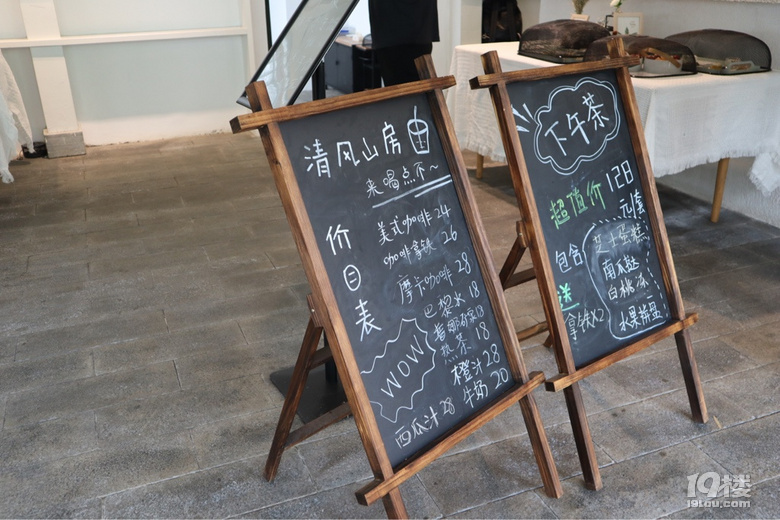 清风山房
来喝点不~
价目表
美式咖啡 24
咖啡拿铁 26
摩卡咖啡 28
巴黎水 18
18
热茶 18
橙汁 28
牛奶 20
西瓜汁 28
WOW
下午茶
超值价 128元/套
包含
蛋糕
南瓜挞
白桃冻
水果拼盘
送
拿铁×2
19楼
19lou.com